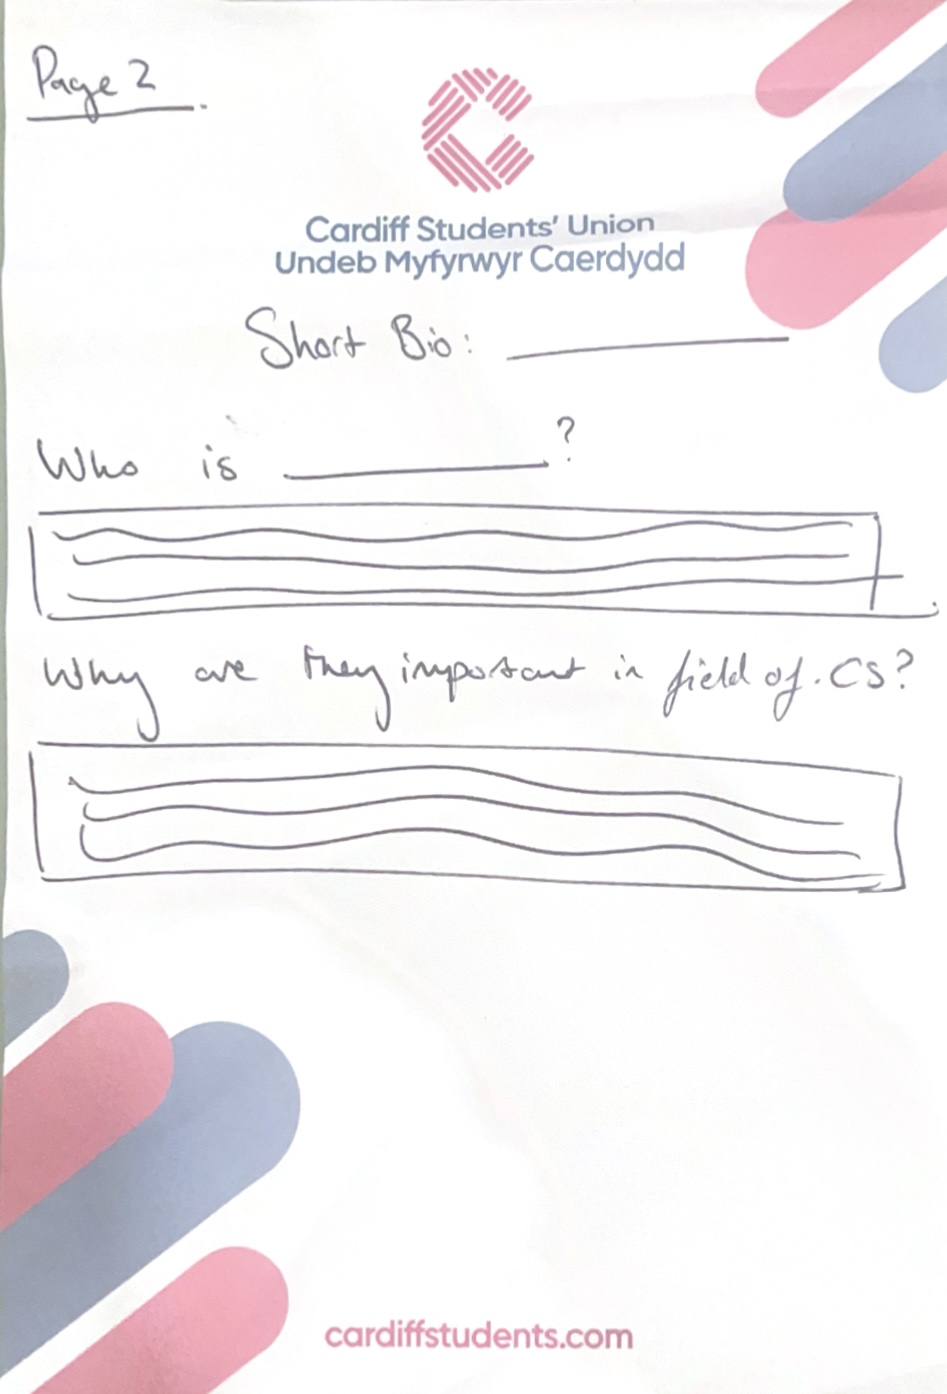 Page 2
Cardiff Students' Union
Undeb Myfyrwyr Caerdydd
Short Bio:
Who is ?
Why are they important in field of CS?
cardiffstudents.com